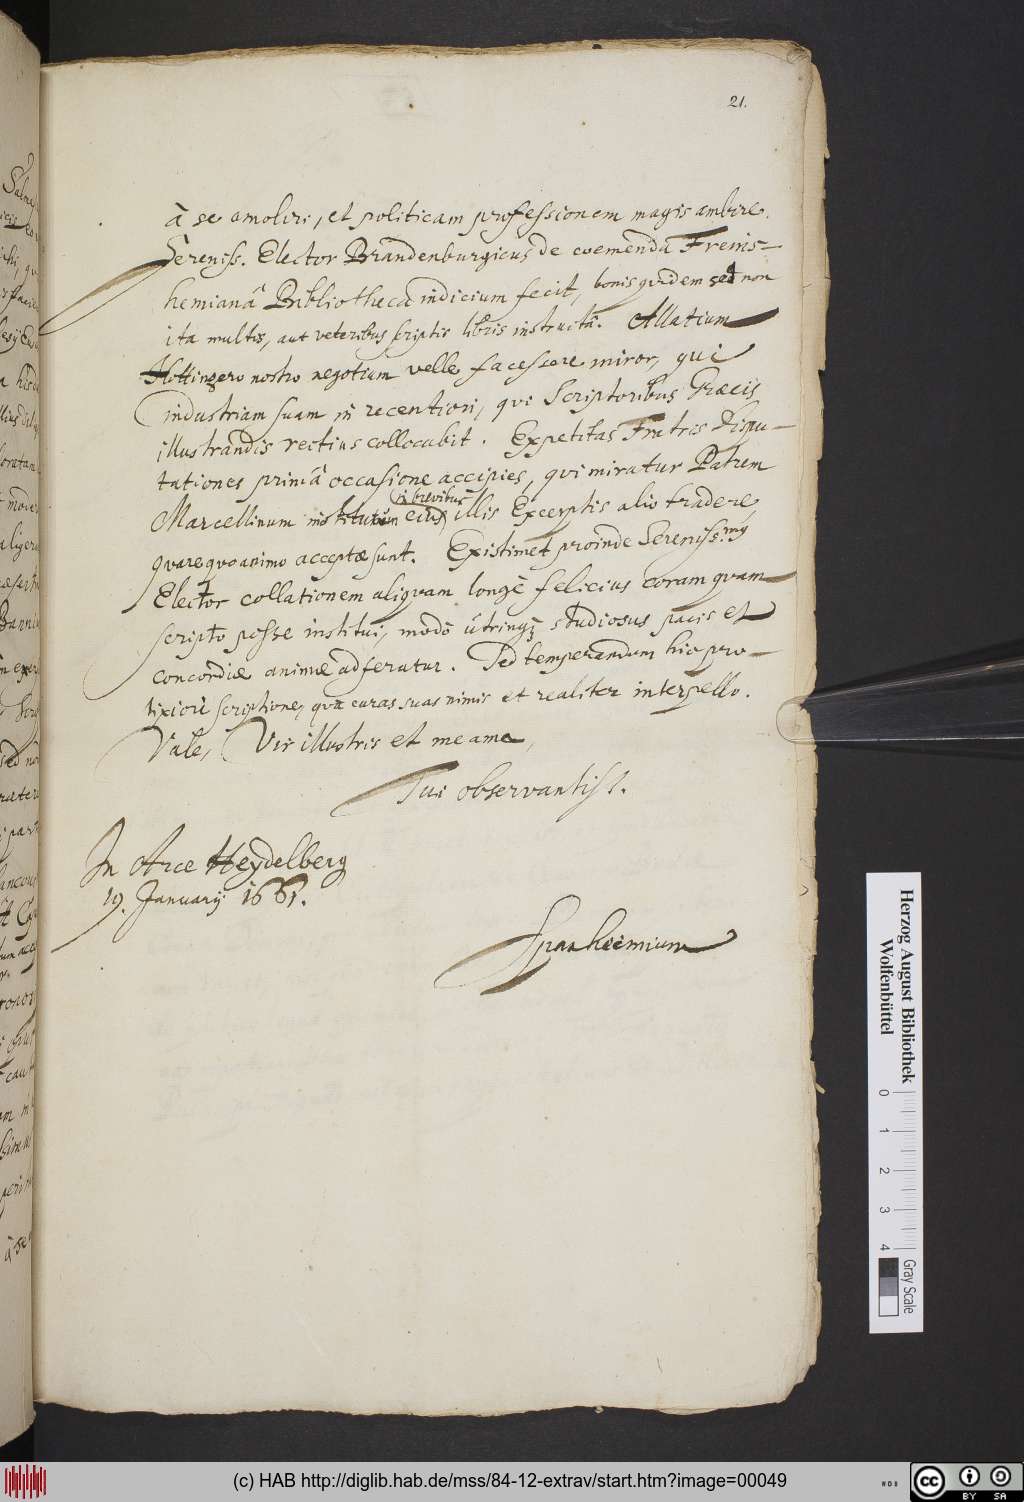 21.
à se amoliri, et politicam professionem magis ambire.
Sereniss. Elector Brandenburgicus de coemendâ Freins-
hemianâ Bibliothecâ indicium fecit, bonis quidem sed non
ita multis, aut veteribus scriptis libris instructâ. Allatium
Hottingero nostro negotium velle facessere miror, qui
industriam suam in recentiori, qvi Scriptoribus Græcis
illustrandis rectius collocabit. Expetitas Fratris Dispu-
tationes primâ occasione accipies, qvi miratur Patrem
in brevibus
Marcellinum institutum eius illis Excerptis alio tradere,
qvare qvo animo acceptæ sunt. Existimet proinde Sereniss.mg
Elector collationem aliqvam longè felicius coram qvam
scripto posse institui, modò utrinqꝫ studiosus pacis et
concordiæ animæ adferatur. Sed temperandum hic pro-
lixiori scriptione, qvæ curas suas nimis et realiter interpello.
Vale, Vir illustris et me ama,
Tui observantiss.
In Arce Heydelberg
19. Januarij 1661.
Spanheimium
Herzog August Bibliothek
Wolfenbüttel
0 1 2 3 4
Gray Scale
(c) HAB http://diglib.hab.de/mss/84-12-extrav/start.htm?image=00049
cc BY SA